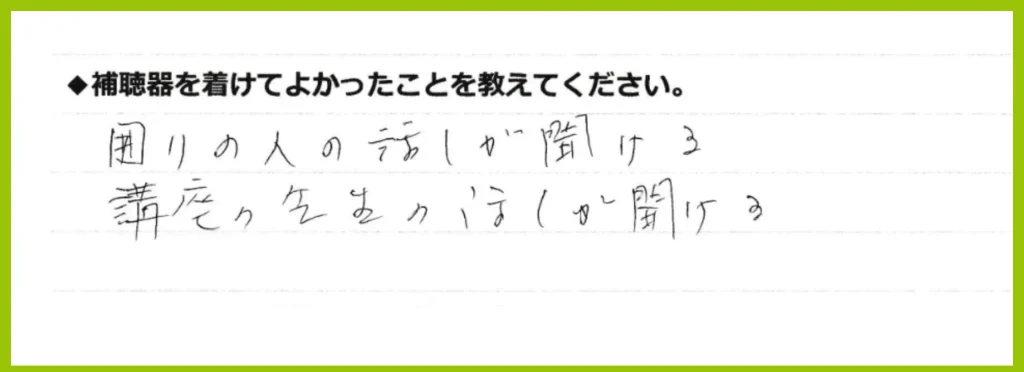 ◆補聴器を着けてよかったことを教えてください。
囲りの人の話しが聞ける
講座の先生の話しが聞ける